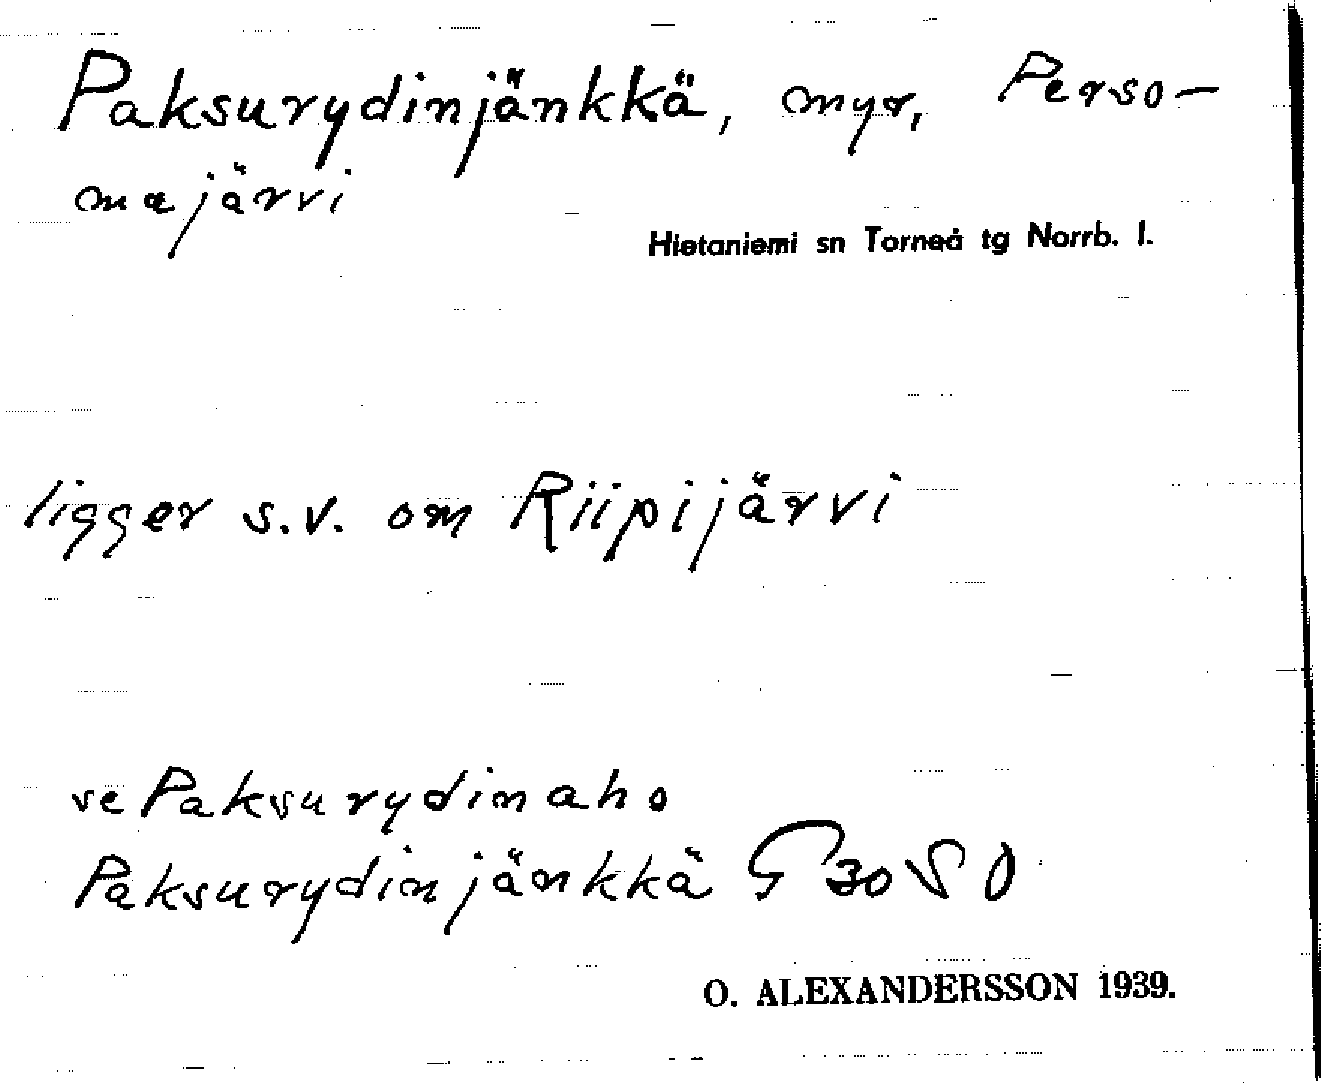 Paksurydinjänkkä, myr, Perso-
majärvi
Hietaniemi sn Torneå tg Norrb. l.
ligger s.v. om Riipijärvi
se Paksurydinaho
Paksurydinjänkkä G 30 S O
O. ALEXANDERSSON 1939.